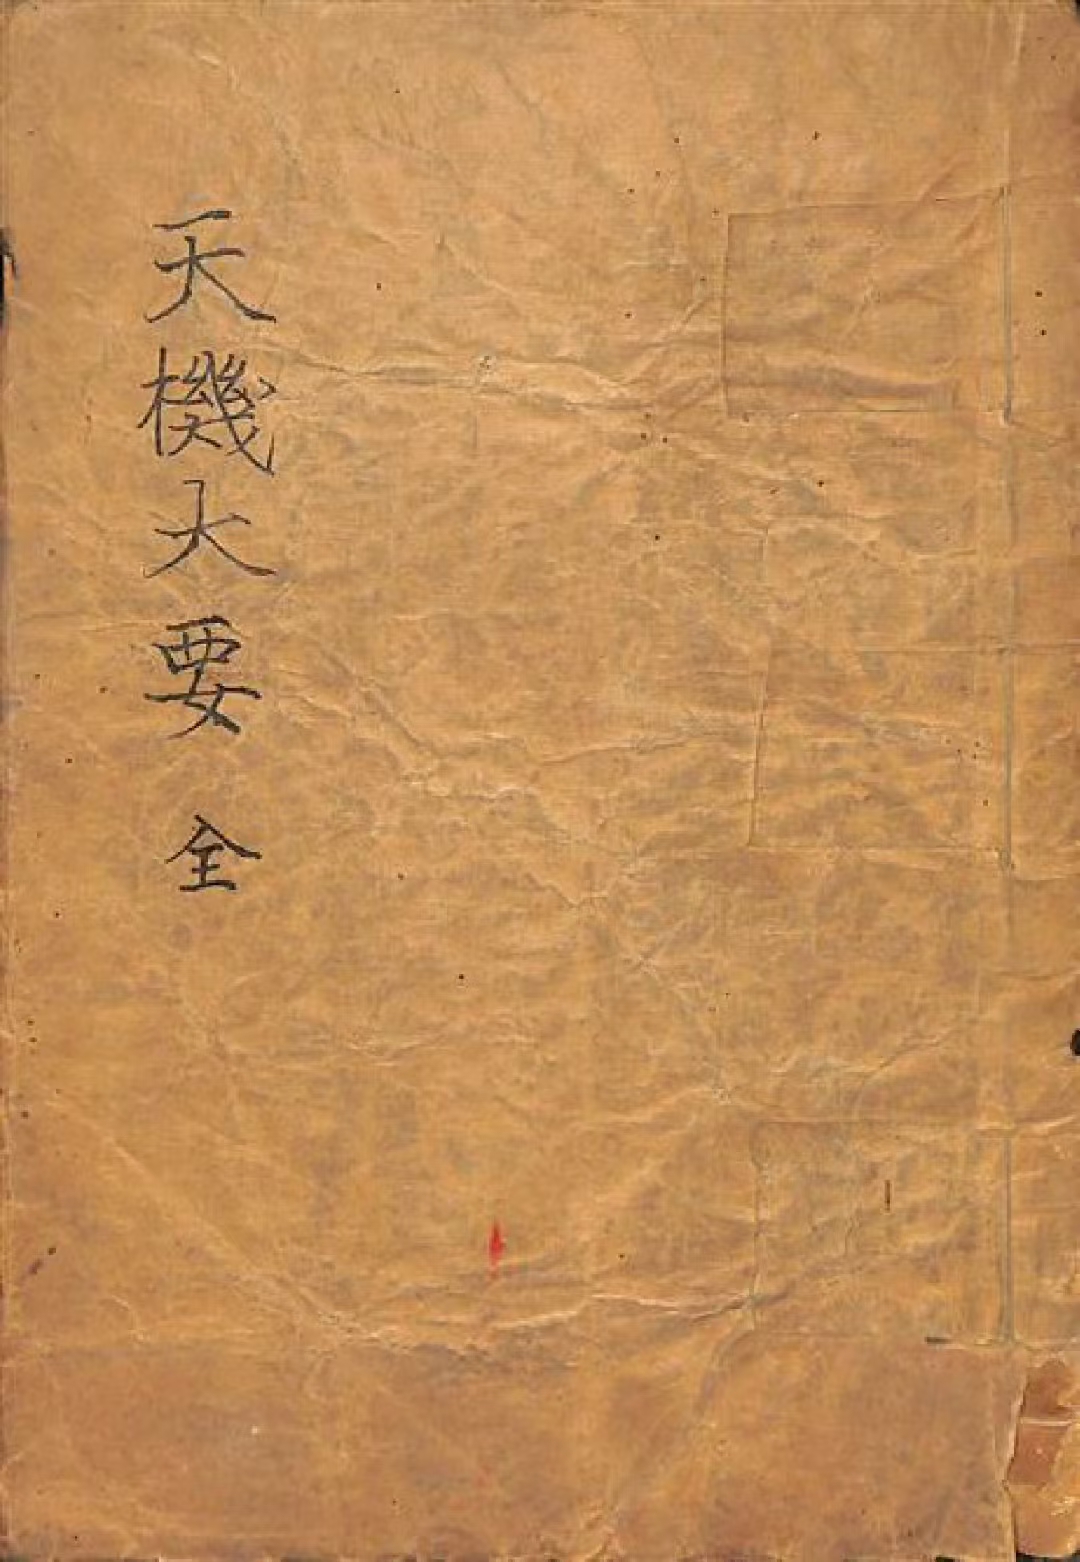 天機大要 全